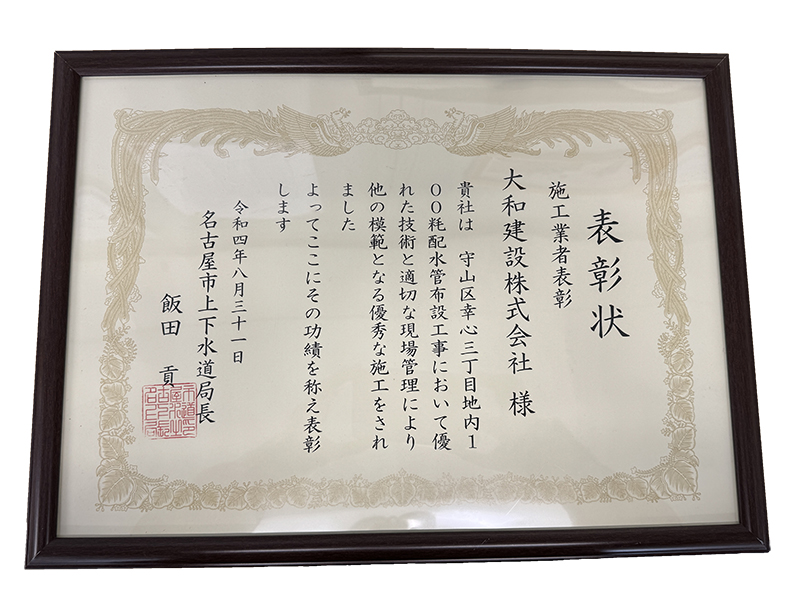 表彰状
施工業者表彰
大和建設株式会社 様
貴社は 守山区幸心三丁目地内1
00粍配水管布設工事において優
れた技術と適切な現場管理により
他の模範となる優秀な施工をされ
ました
よってここにその功績を称え表彰
します
令和四年八月三十一日
名古屋市上下水道局長
飯田 貢